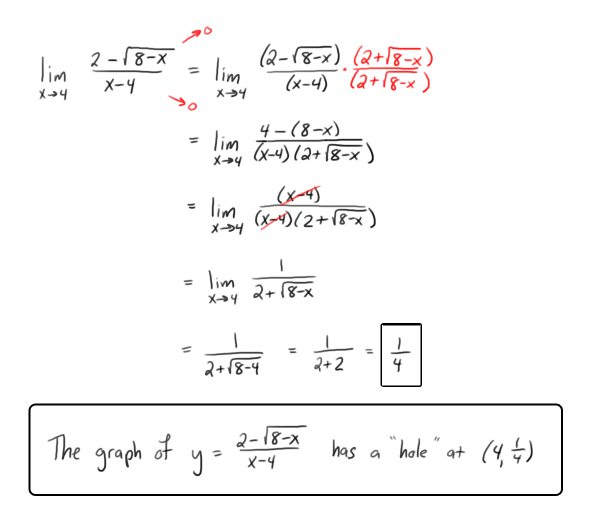 lim x→4 (2-√(8-x))/(x-4) →0 →0 = lim x→4 (2-√(8-x))/(x-4) · (2+√(8-x))/(2+√(8-x))
= lim x→4 (4-(8-x))/((x-4)(2+√(8-x)))
= lim x→4 (x-4)/((x-4)(2+√(8-x)))
= lim x→4 1/(2+√(8-x))
= 1/(2+√(8-4)) = 1/(2+2) = 1/4
The graph of y = (2-√(8-x))/(x-4) has a "hole" at (4, 1/4)